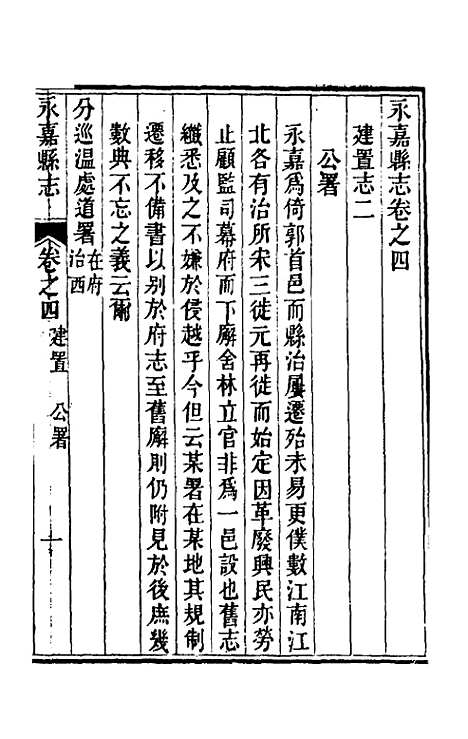 永嘉縣志卷之四
建置志二
公署
永嘉爲倚郭首邑而縣治屢遷殆未易更僕數江南江
北各有治所宋三徙元再徙而始定因革廢興民亦勞
止顧監司幕府而下廨舍林立官非爲一邑設也舊志
纖悉及之不嫌於侵越乎今但云某署在某地其規制
遷移不備書以别於府志至舊廨則仍附見於後庶幾
數典不忘之義云爾
分巡温處道署在府治西
永嘉縣志 卷之四 建置 公署 一